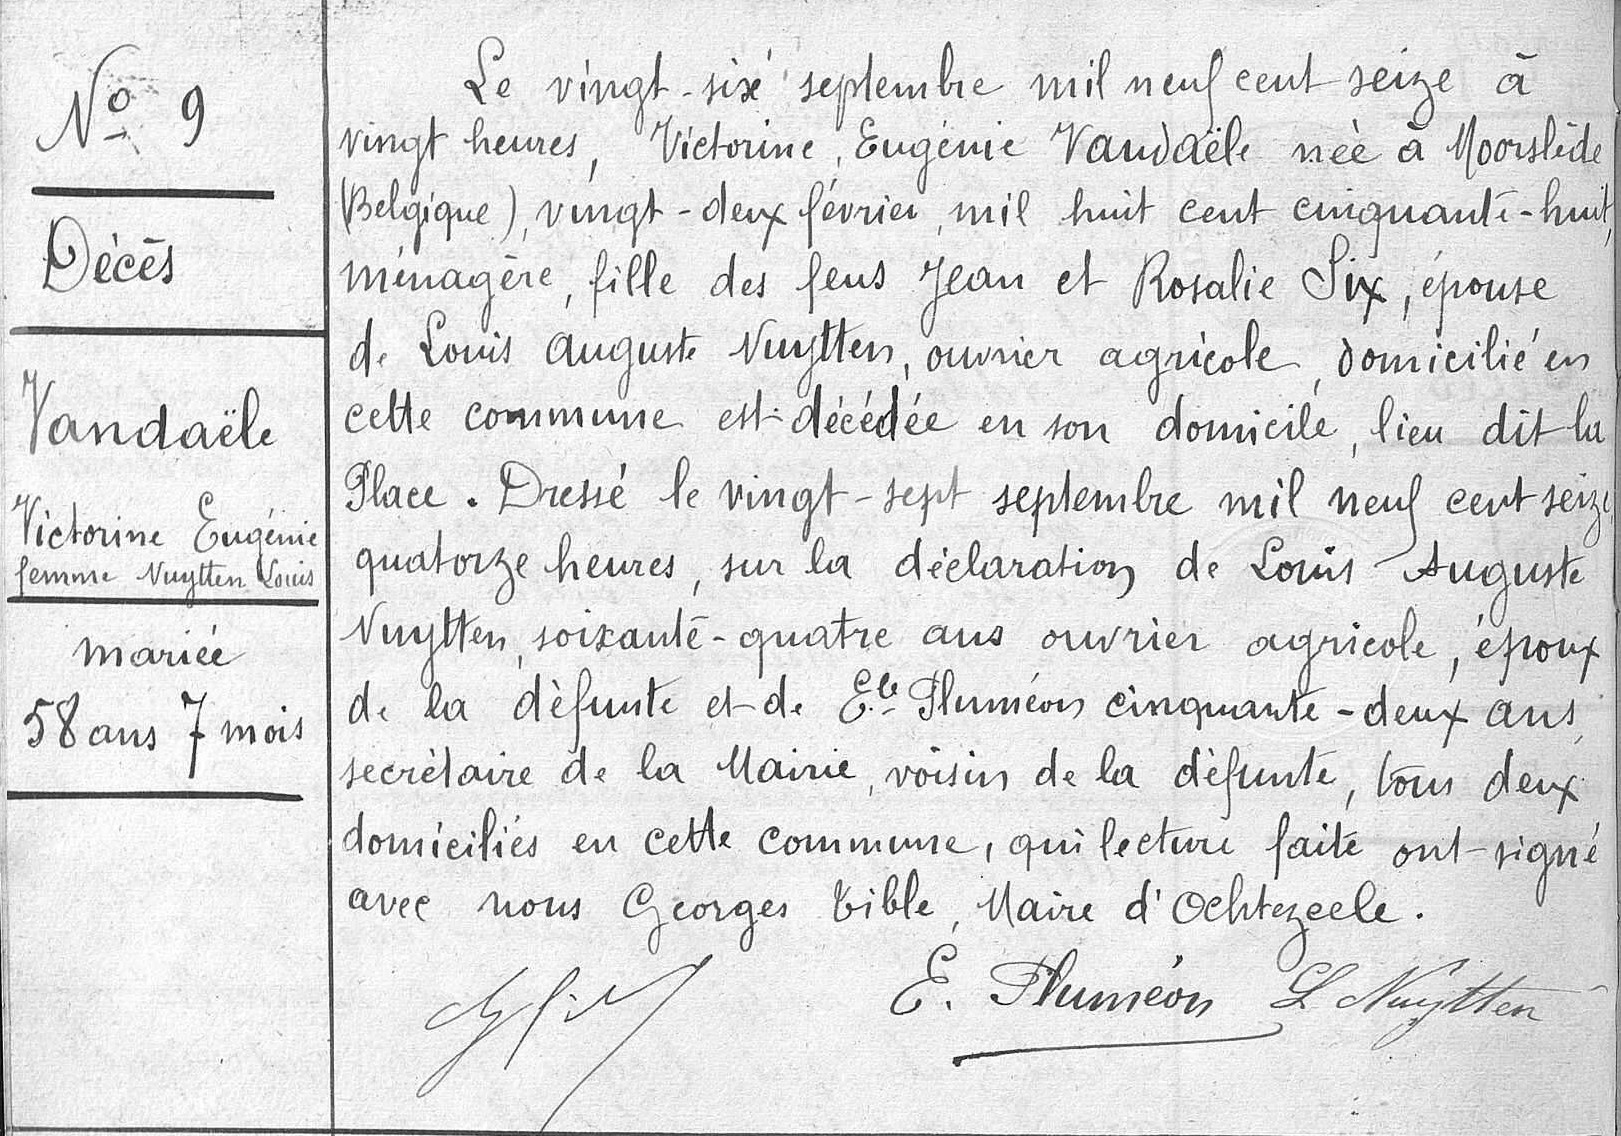 No 9
Décès
Vandaële
Victorine Eugénie
femme Nuytten Louis
mariée
58 ans 7 mois
Le vingt-six septembre mil neuf cent seize à
vingt heures, Victorine, Eugénie Vandaële née à Moorslède
(Belgique), vingt-deux février, mil huit cent cinquante-huit,
ménagère, fille des feus Jean et Rosalie Six, épouse
de Louis Auguste Nuytten, ouvrier agricole, domicilié en
cette commune est décédée en son domicile, lieu dit la
Place. Dressé le vingt-sept septembre mil neuf cent seize
quatorze heures, sur la déclaration de Louis Auguste
Nuytten, soixante-quatre ans ouvrier agricole, époux
de la défunte et de E. Pluméon cinquante-deux ans,
secrétaire de la Mairie, voisin de la défunte, tous deux
domiciliés en cette commune, qui lecture faite ont signé
avec nous Georges Bible, Maire d'Ochtezeele.
E. Pluméon L Nuytten